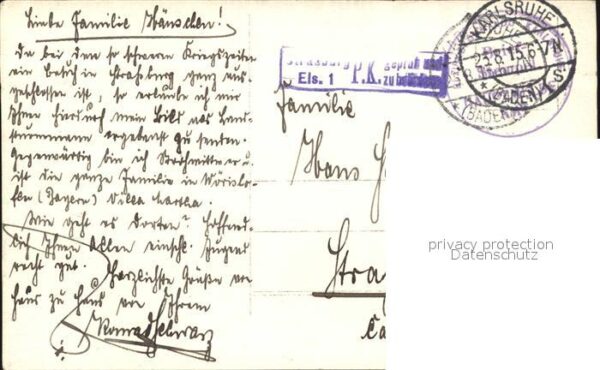 Liebe Familie Hänschen!
Da bei den so schweren Kriegszeiten
ein besuch in Straßburg ganz aus-
geschlossen ist, so erlaube ich mir
Ihnen hierdurch mein Bild als Land-
sturmmann ergebenst zu senden.
Gegenwärtig bin ich Strohwittwer u.
ist die ganze Familie in Wöris-
hofen (Bayern) Villa Martha.
Wie geht es Dorten? Hoffend-
lich Ihnen Allen einschl. Jugend
recht gut. Herzlichste Grüße von
Haus zu Haus von Ihrem
Strassburg P.K. geprüft und
Els. 1 zu befördern
KARLSRUHE
23.8.15.6-7N
(BADEN)
Familie
Hans
Stra
privacy protection
Datenschutz